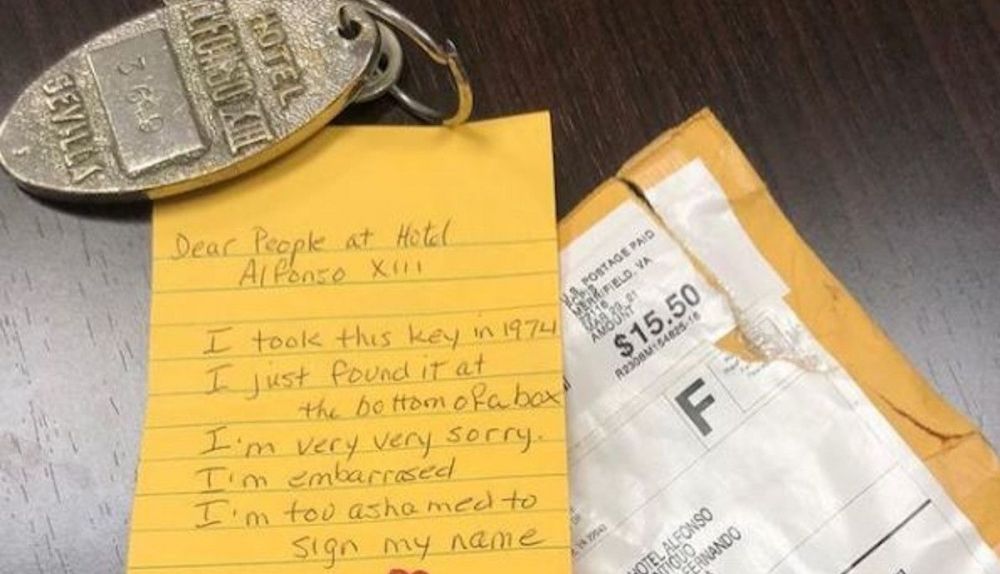 HOTEL
ALFONSO XIII
SEVILLA
Dear People at Hotel
Alfonso XIII
I took this key in 1974
I just found it at
the bottom of a box
I'm very very sorry.
I'm embarrased
I'm too ashamed to
sign my name
U.S. POSTAGE PAID
MERRIFIELD, VA
AMOUNT
$15.50
F
HOTEL ALFONSO
FERNANDO